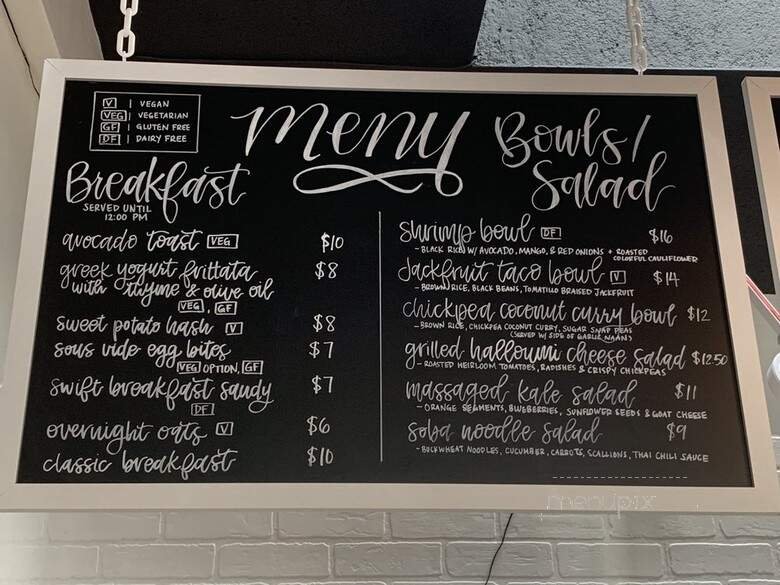 V | VEGAN
VEG | VEGETARIAN
GF | GLUTEN FREE
DF | DAIRY FREE
Menu
Breakfast
SERVED UNTIL
12:00 PM
avocado toast VEG $10
greek yogurt frittata $8
with thyme & olive oil
VEG, GF
sweet potato hash V $8
sous vide egg bites $7
VEG OPTION, GF
swift breakfast sandy $7
DF
overnight oats V $6
classic breakfast $10
Bowls/
Salad
shrimp bowl DF $16
- BLACK RICE W/ AVOCADO, MANGO, & RED ONIONS + ROASTED
COLORFUL CAULIFLOWER
Jackfruit taco bowl V $14
- BROWN RICE, BLACK BEANS, TOMATILLO BRAISED JACKFRUIT
chickpea coconut curry bowl $12
- BROWN RICE, CHICKPEA COCONUT CURRY, SUGAR SNAP PEAS
(SERVED W/ SIDE OF GARLIC NAAN)
grilled halloumi cheese salad $12.50
- ROASTED HEIRLOOM TOMATOES, RADISHES & CRISPY CHICKPEAS
massaged kale salad $11
- ORANGE SEGMENTS, BLUEBERRIES, SUNFLOWER SEEDS & GOAT CHEESE
soba noodle salad $9
- BUCKWHEAT NOODLES, CUCUMBER, CARROTS, SCALLIONS, THAI CHILI SAUCE
menupix